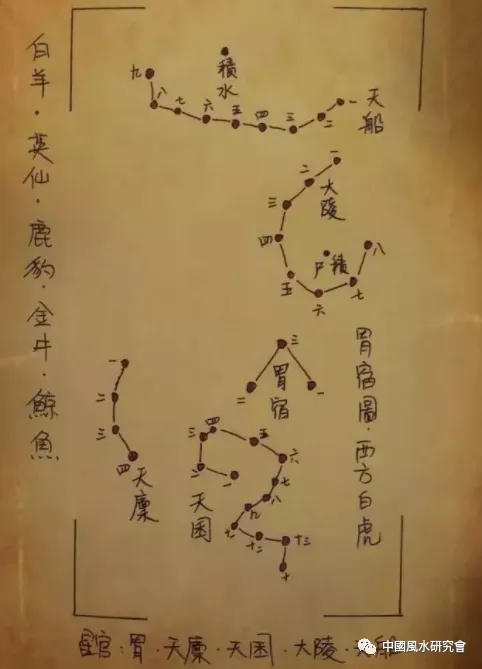 白羊·英仙·鹿豹·金牛·鯨魚
積水
天船
一
二
三
四
五
四
六
七
八
九
大陵
一
二
三
四
五
六
七
八
積尸
胃宿
一
二
三
胃宿圖·西方白虎
天廩
一
二
三
四
天囷
一
二
三
四
五
六
七
八
九
十二
十三
十
星官:胃·天廩·天囷·大陵·
中國風水研究會